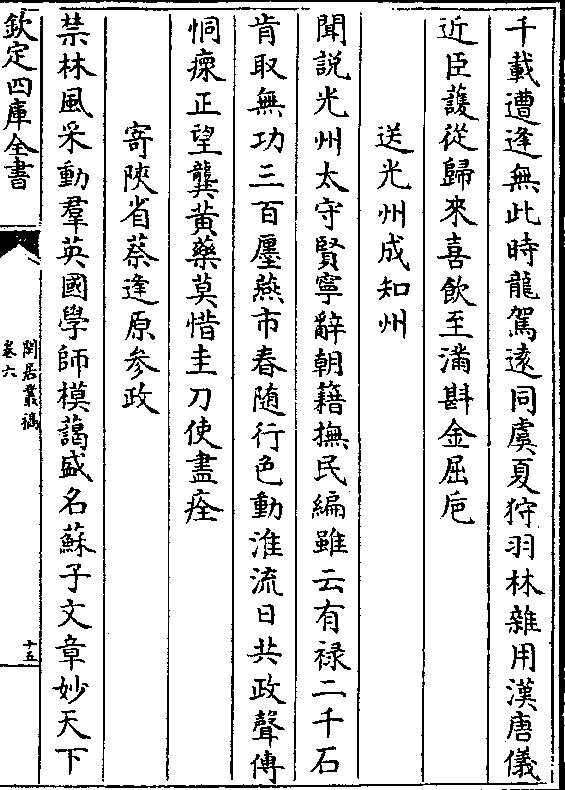 千載遭逢無此時龍駕遠同虞夏狩羽林雜用漢唐儀
近臣䕶從歸來喜飲至滿斟金屈巵
送光州成知州
聞説光州太守賢寧辭朝籍撫民編雖云有禄二千石
肯取無功三百廛燕市春随行色動淮流日共政聲傳
恫瘝正望龔黄藥莫惜圭刀使盡痊
寄陜省蔡逢原參政
禁林風采動羣英國學師模藹盛名蘇子文章妙天下
欽定四庫全書
閒居叢稿
卷六
十五